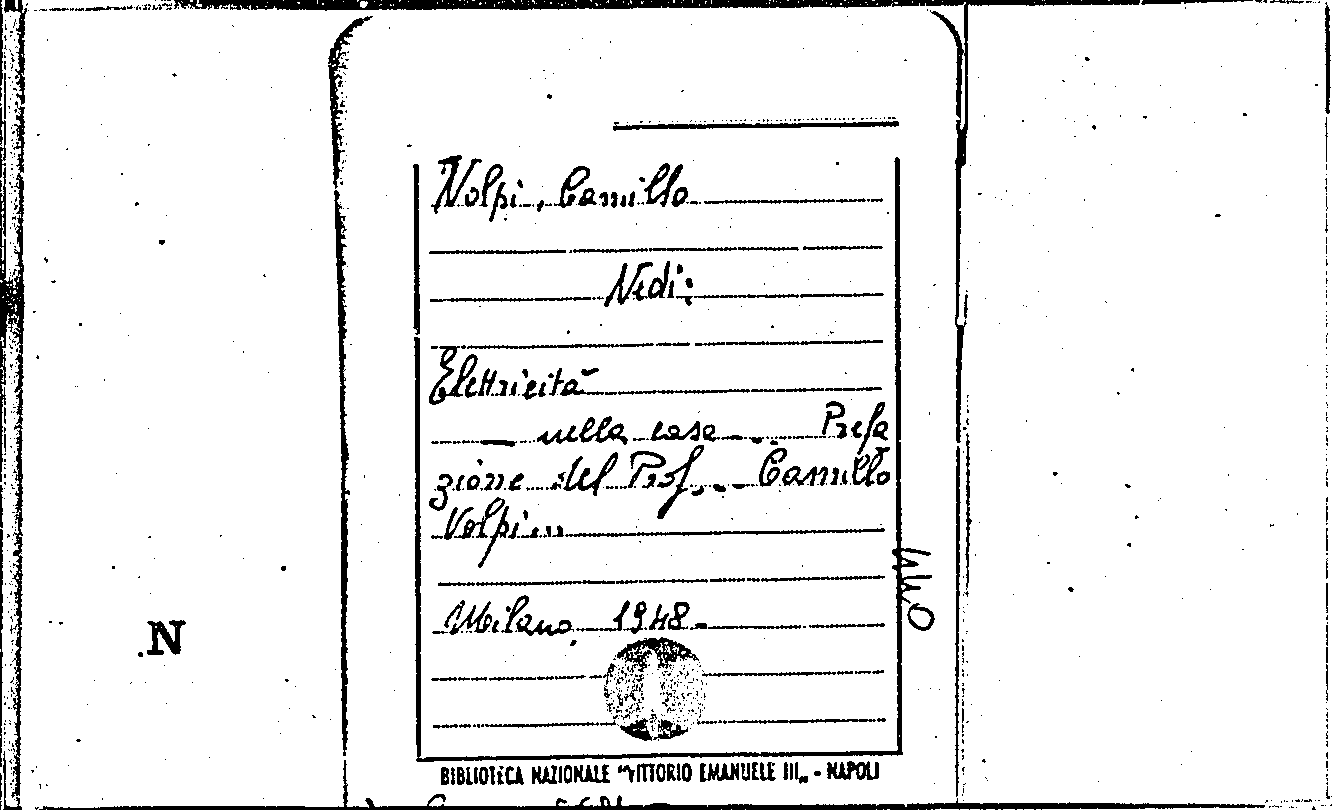 Volpi, Camillo
Vedi:
Elettricità
— nella casa... Prefa
zione del Prof... Camillo
Volpi...
Milano, 1948.
440
.N
BIBLIOTECA NAZIONALE "VITTORIO EMANUELE III„ - NAPOLI